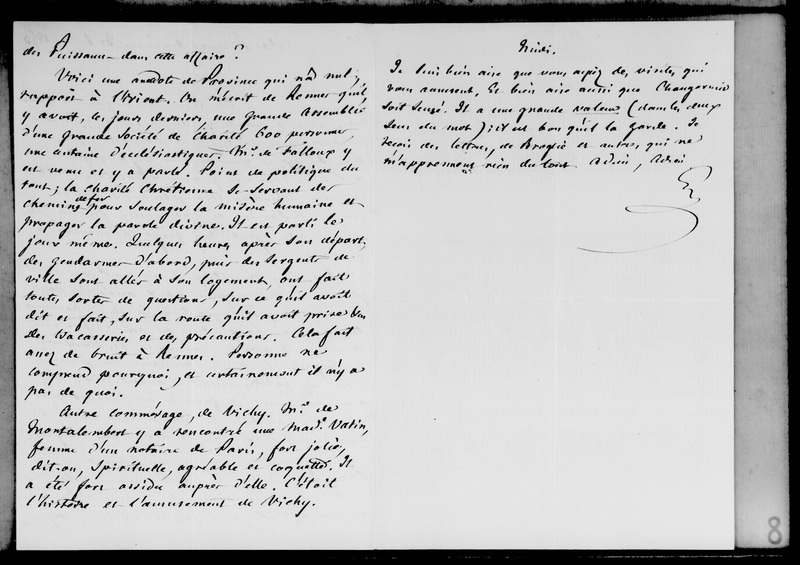 des Puissances dans cette affaire ?
Voici une anecdote de Province qui n'a nul
rapport à l'Orient. On m'écrit de Rennes qu'il
y avait, les jours derniers, une grande assemblée
d'une grande Société de Charité, 600 personnes,
une centaine d'écclésiastiques. Mr. de Falloux y
est venu et y a parlé. Point de politique du
tout ; la charité Chrétienne se servant des
chemins de fer pour soulager la misère humaine et
propager la parole divine. Il est parti le
jour même. Quelques heures après son départ,
des gendarmes d'abord, puis des sergents de
ville sont allés à son logement, ont fait
toutes sortes de questions, sur ce qu'il avait
dit et fait, sur la route qu'il avait prise
des tracasseries et des précautions. Cela fait
assez de bruit à Rennes. Personne ne
comprend pourquoi, et certainement il n'y a
pas de quoi.
Autre commérage, de Vichy. Mr. de
Montalembert y a rencontré une made. Vatin,
femme d'un notaire de Paris, fort jolie,
dit-on, spirituelle, agréable et coquette. Il
a été fort assidu auprès d'elle. C'était
l'histoire et l'amusement de Vichy.
Midi.
Je suis bien aise que vous ayiez des visites qui
vous amusent, et bien aise aussi que Changarnier
soit sensé. Il a une grande valeur (dans les deux
sens du mot) ; il est bon qu'il la garde. Je
reçois des lettres, de Broglie et autres, qui ne
m'apprennent rien du tout. Adieu, Adieu
8